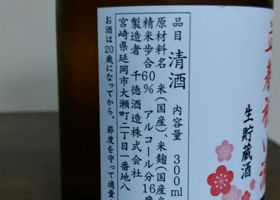 品目 清酒 内容量 300ml
原材料名 米(国産)、米麹(国産
精米歩合60% アルコール分16度
製造者 千徳酒造株式会社
宮崎県延岡市大瀬町二丁目一番地八
お酒は20歳になってから。節度を守って適量
生貯蔵酒